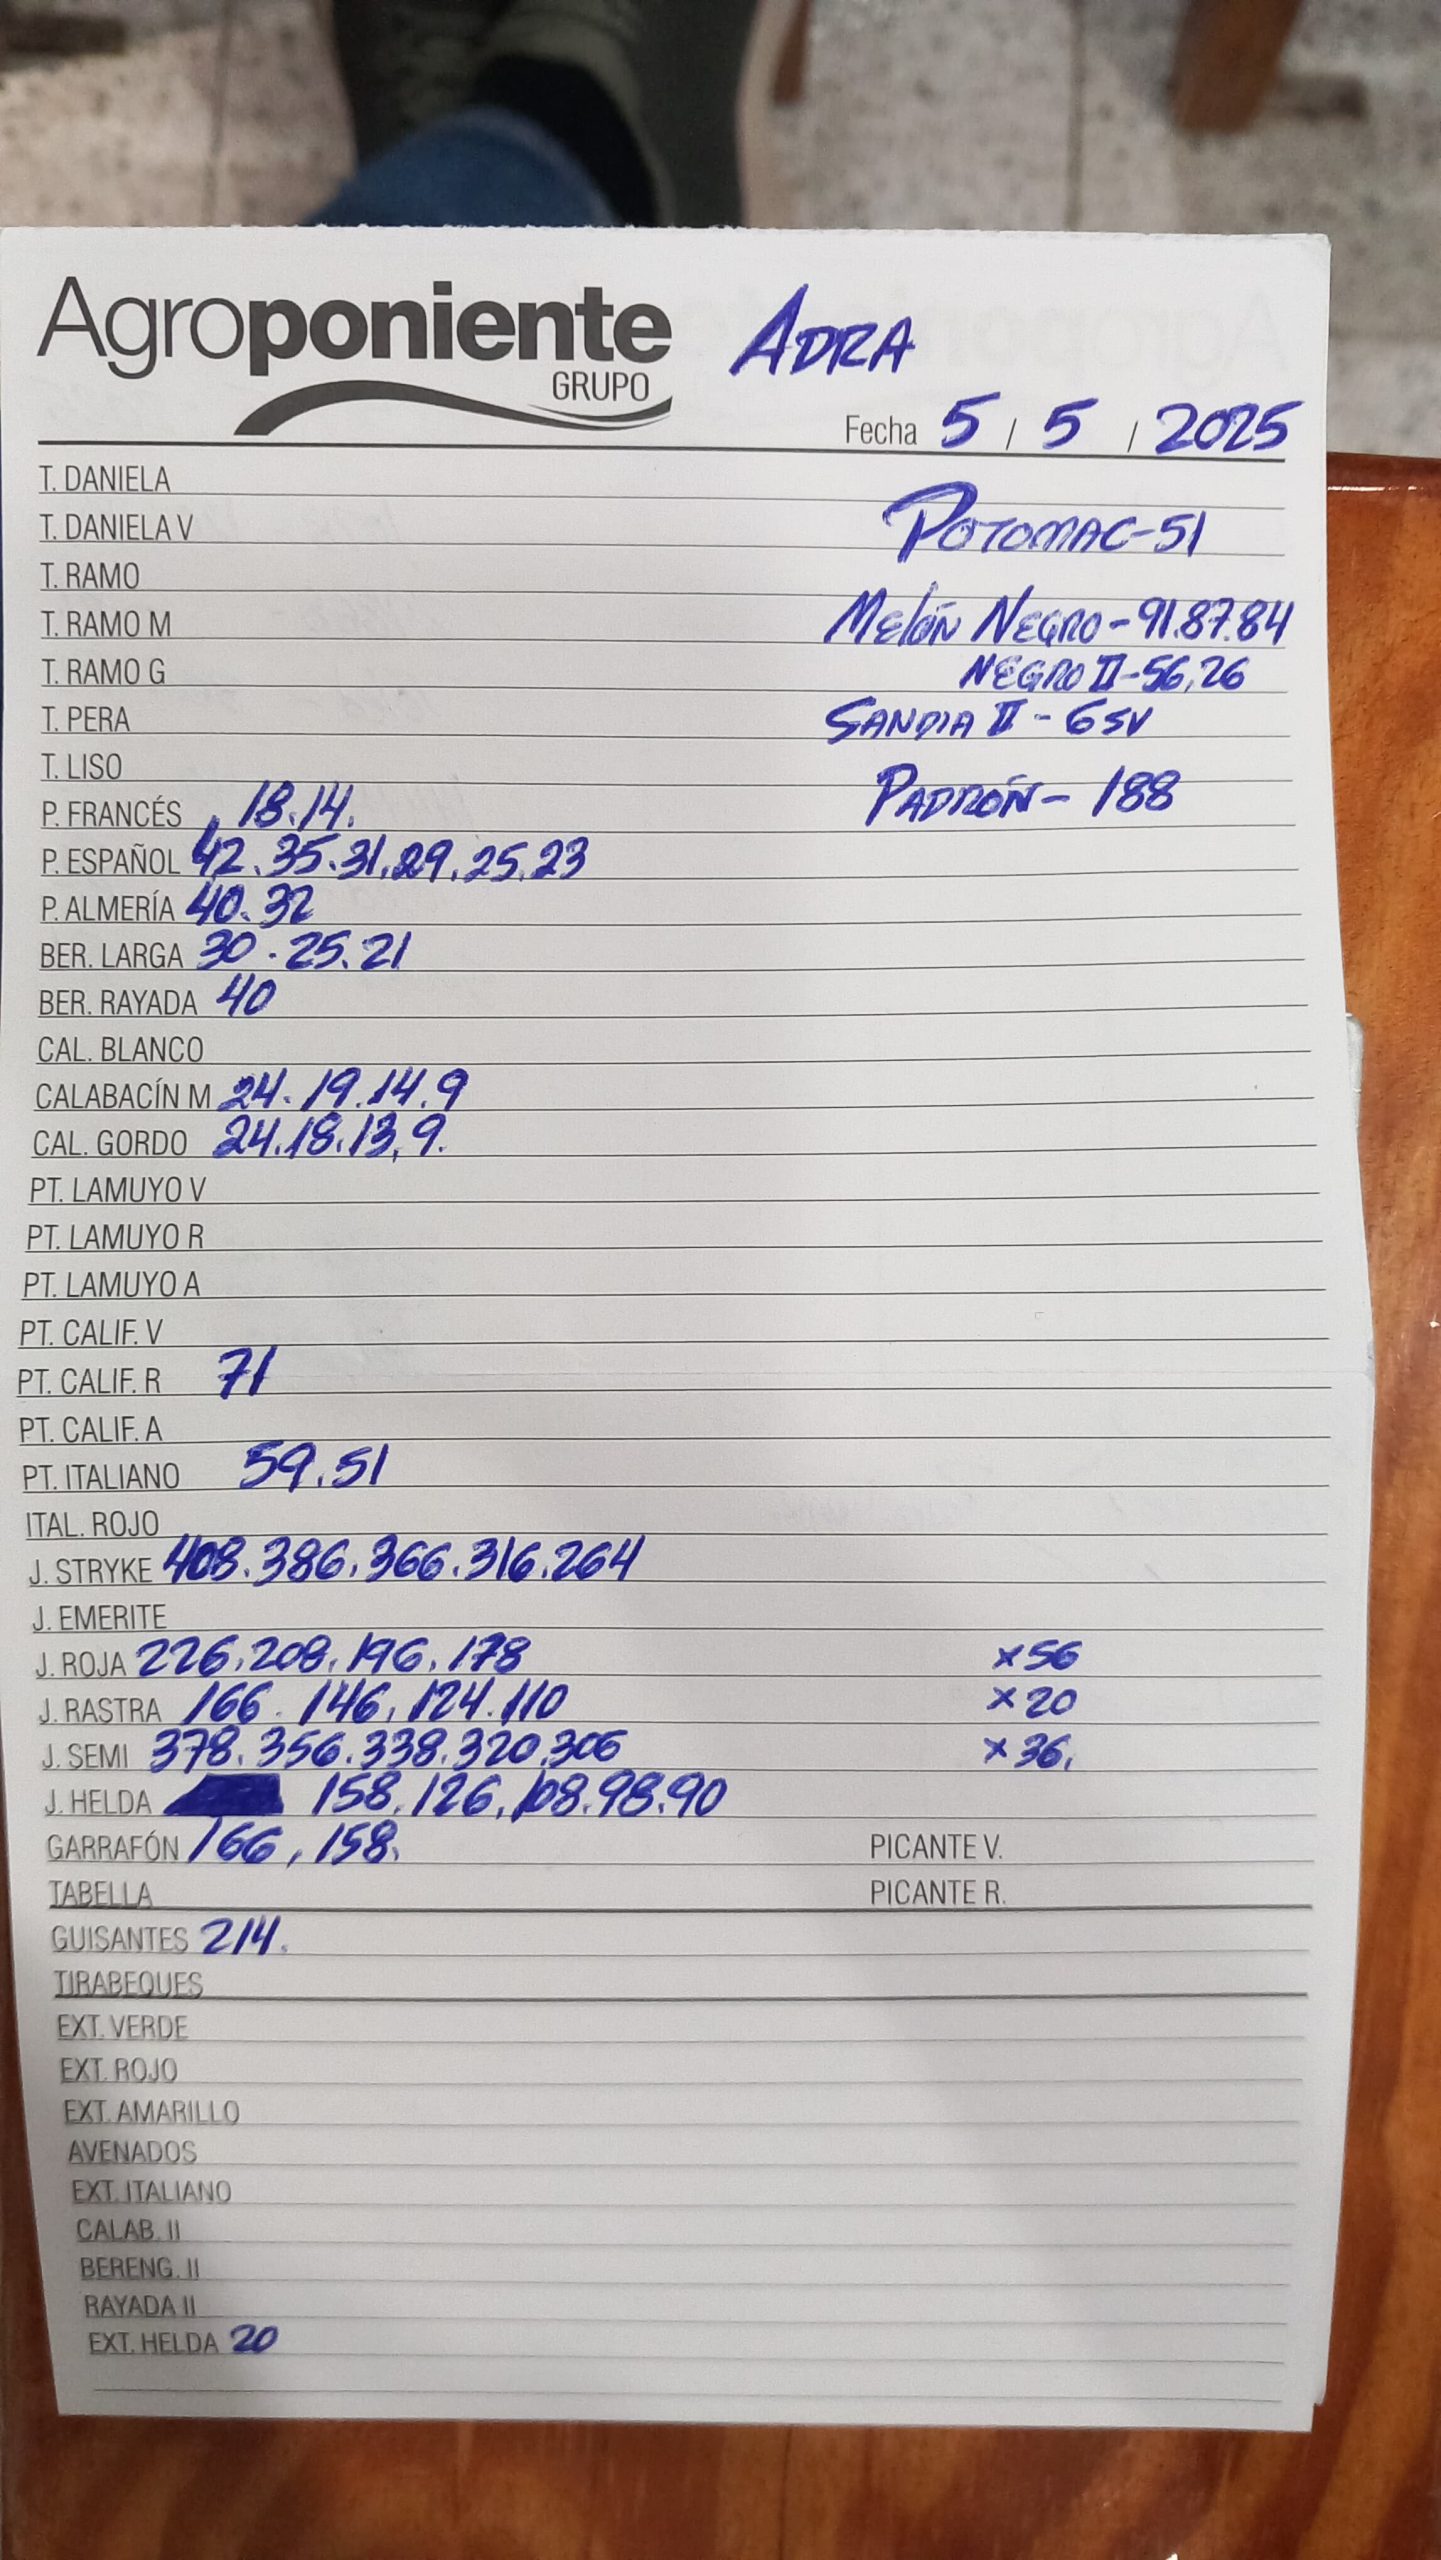 Agroponiente
GRUPO
ADRA
Fecha 5 / 5 / 2025
T. DANIELA
T. DANIELA V POTOMAC-51
T. RAMO
T. RAMO M MELÓN NEGRO-91.87.84
T. RAMO G NEGRO II-56,26
T. PERA SANDIA II - 6 SV
T. LISO
P. FRANCÉS 18.14. PADRÓN- 188
P. ESPAÑOL 42.35.31.29.25.23
P. ALMERÍA 40.32
BER. LARGA 30.25.21
BER. RAYADA 40
CAL. BLANCO
CALABACÍN M 24.19.14.9
CAL. GORDO 24.18.13,9.
PT. LAMUYO V
PT. LAMUYO R
PT. LAMUYO A
PT. CALIF. V
PT. CALIF. R 71
PT. CALIF. A
PT. ITALIANO 59.51
ITAL. ROJO
J. STRYKE 408.386.366.316.264
J. EMERITE
J. ROJA 226.208.196.178 x56
J. RASTRA 166.146.124.110 x20
J. SEMI 378.356.338.320.306 x36.
J. HELDA 158.126.108.98.90
GARRAFÓN 166, 158. PICANTE V.
TABELLA PICANTE R.
GUISANTES 214.
TIRABEQUES
EXT. VERDE
EXT. ROJO
EXT. AMARILLO
AVENADOS
EXT. ITALIANO
CALAB. II
BERENG. II
RAYADA II
EXT. HELDA 20